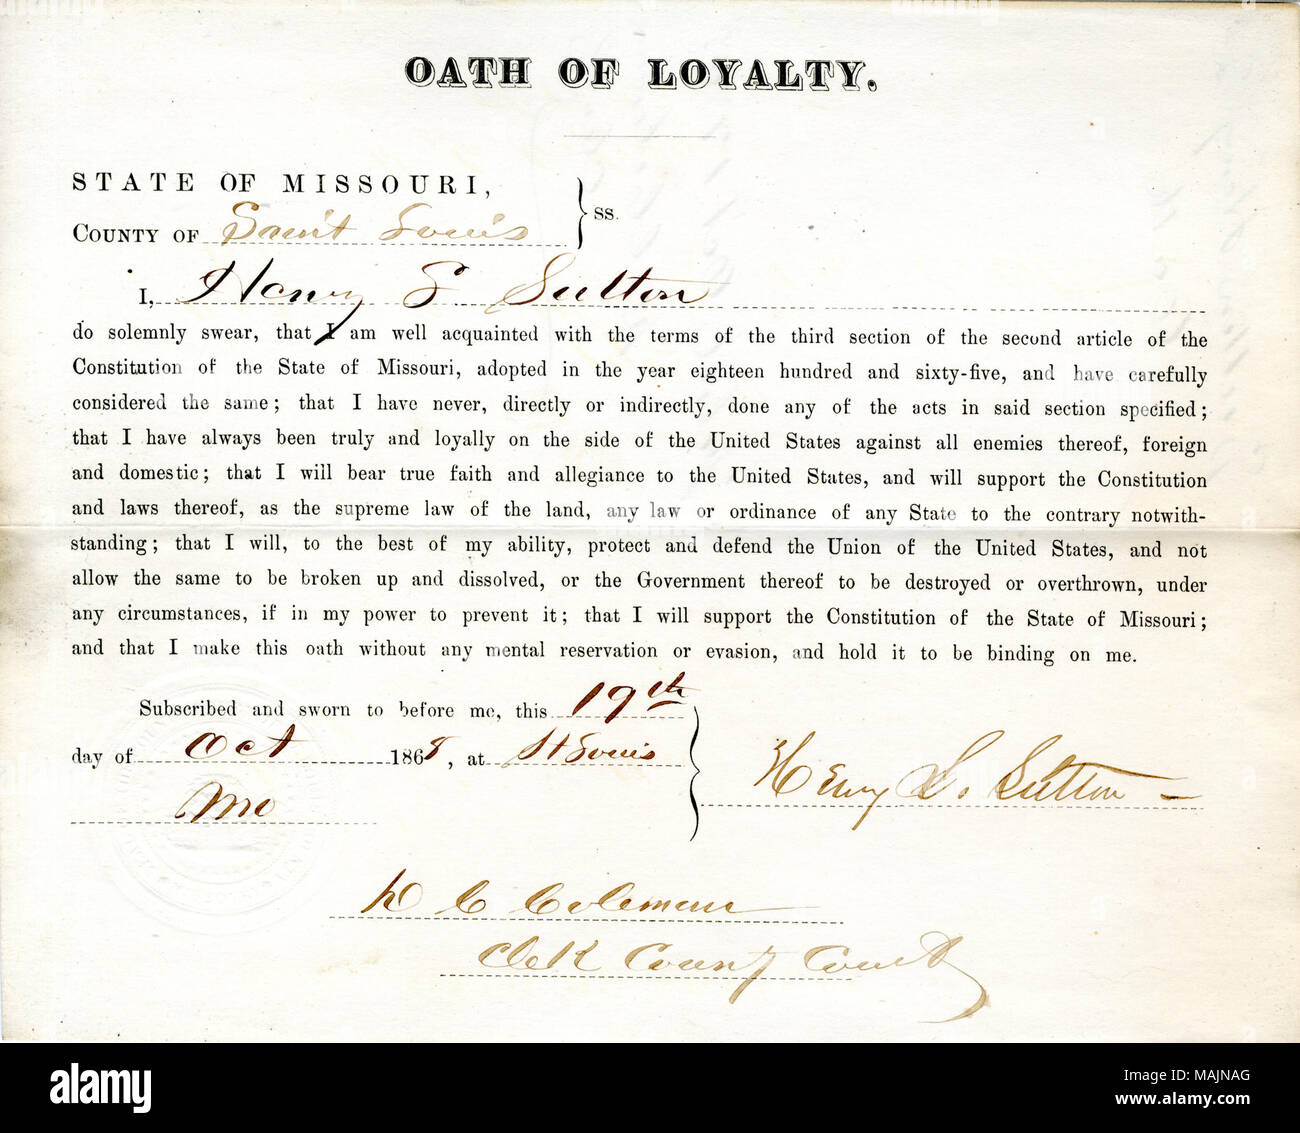 OATH OF LOYALTY.
STATE OF MISSOURI,
COUNTY OF Saint Louis } ss.
I, Henry S Sutton
do solemnly swear, that I am well acquainted with the terms of the third section of the second article of the
Constitution of the State of Missouri, adopted in the year eighteen hundred and sixty-five, and have carefully
considered the same; that I have never, directly or indirectly, done any of the acts in said section specified;
that I have always been truly and loyally on the side of the United States against all enemies thereof, foreign
and domestic; that I will bear true faith and allegiance to the United States, and will support the Constitution
and laws thereof, as the supreme law of the land, any law or ordinance of any State to the contrary notwith-
standing; that I will, to the best of my ability, protect and defend the Union of the United States, and not
allow the same to be broken up and dissolved, or the Government thereof to be destroyed or overthrown, under
any circumstances, if in my power to prevent it; that I will support the Constitution of the State of Missouri;
and that I make this oath without any mental reservation or evasion, and hold it to be binding on me.
Subscribed and sworn to before me, this 19th
day of Oct 1868, at St Louis
Mo
Henry S. Sutton
C Coleman
Clek County Court
alamy
Image ID: MAJNAG
www.alamy.com